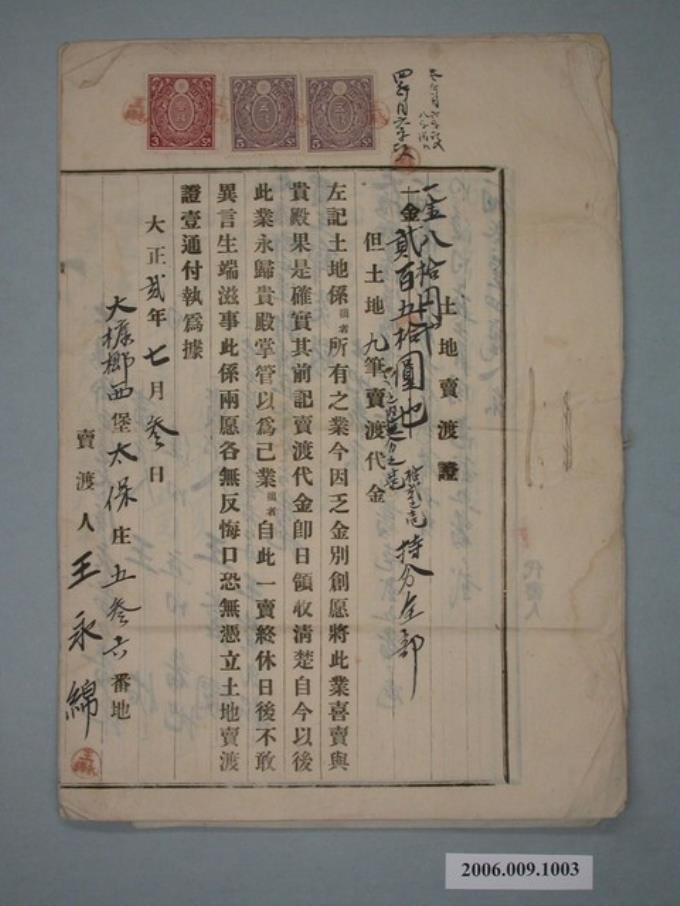 土地賣渡證
一金八拾円
一金貳百五拾圓也
但土地九筆賣渡代金
持分全部
左記土地係福省所有之業今因乏金別創愿將此業喜賣與
貴殿果是確實其前記賣渡代金卽日領收清楚自今以後
此業永歸貴殿掌管以爲己業福省自此一賣終休日後不敢
異言生端滋事此係兩愿各無反悔口恐無憑立土地賣渡
證壹通付執爲據
大正貳年七月叁日
大槺榔西堡太保庄五叁六番地
賣渡人王永綿
3 Sn.
5 Sn.
5 Sn.
2006.009.1003